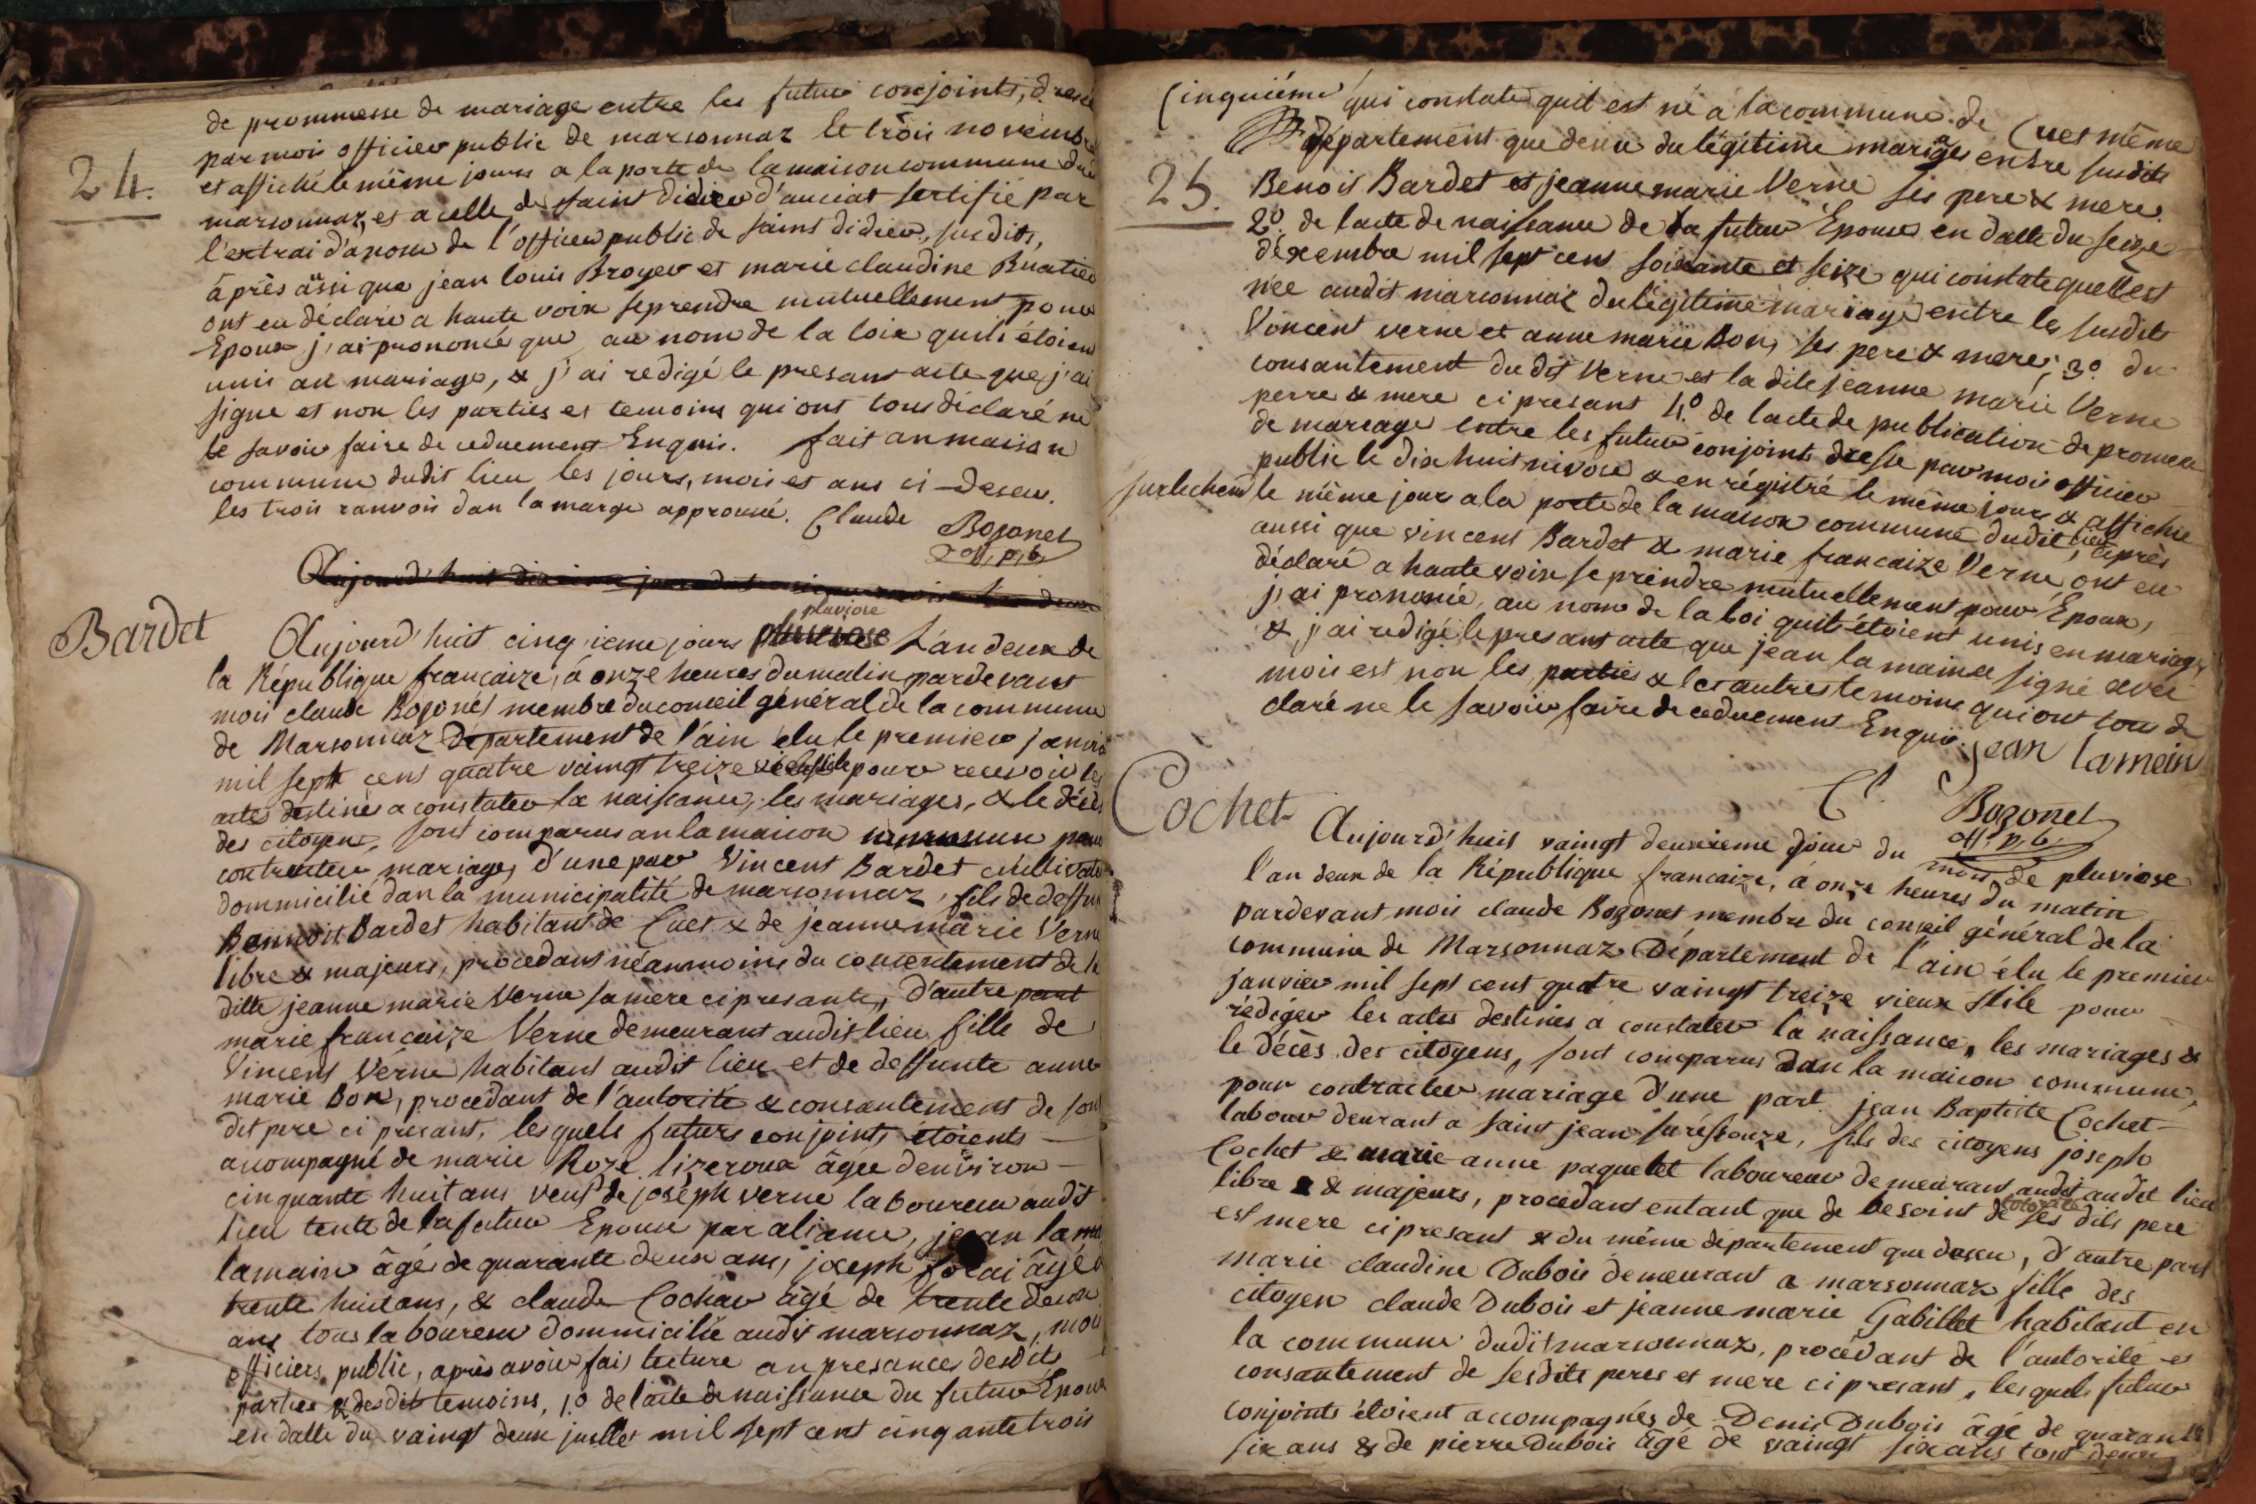 24.
de prommesse de mariage entre les futur conjoints, dressé
par mois officier public de marsonnaz le trois novembre
et affiché le même jours a la porte de la maison commune dudit
marsonnaz, et a celle de saint didier d'auciat sertifié par
l'extrai d'anosse de l'officier public de saint didier, susdits,
â près äsi que jean louis Broyer et marie claudine Buatier
ont eu déclaré a haute voix se prendre mutuellement pour
Epoux j'ai prononcé que au nom de la loix quils étoien
unis au mariage, & j'ai redigé le presant acte que j'ai
signe et non les parties et temoins qui ont tous déclaré ne
le savoir faire de ce duement Enquis. fait an maison
commune dudit lieu les jours, mois et ans ci-deseu.
les trois ranvois dan la marge approuvé. Claude Bozonet
off. p. b.
Aujourd'huit
Bardet
pluviose
Aujourd'huit cinq ieme jours pluviose L'an deux de
la République francaize, a onze heures du matin pardevant
mois claude Bozonet membre du conseil général de la commune
de Marsonnaz Departement de l'ain élu le premier janvier
mil sept cens quatre vaingt treize vieu stile pour recevoir les
actes destinés a constater la naissance, les mariages, & le décès
des citoyens, sont comparus an la maison commune pour
contracter mariage, d'une par Vincent Bardet cultivateur
dommicilié dan la municipalité de marsonnaz, fils de deffun
Bennoit Bardet habitant de Cuet & de jeanne marie Verne
libre & majeurs, procedans néanmoins du consentement de la
ditte jeanne marie Verne sa mere ci presante, d'autre part
marie francaize Verne demeurant audit lieu fille de
Vincent Verne habitant audit lieu et de deffunte anne
marie Bon, procedant de l'autorité & consantement de son
dit pere ci presant, lesquels futurs conjoints étoients
acompagné de marie Roze lizeroux âgée denviron
cinquante huit ans veuf de joséph verne laboureur audit
lieu tente de la futur Epouse par aliance, jean lama
lamain âgé de quarante deux ans, joseph âgé
trente huit ans, & claude Cochar âgé de trente deux
ans tous laboureur dommicilié audit marsonnaz, mois
officiers public, après avoir fais lecture an presances desdits
parties & desdit temoins, 1.o de l'acte de naissance du futur Epoux
en datte du vaingt deux juillet mil sept cent cinquante trois
25.
Cinquiéme qui constate quil est né a la commune de Cuet même
département que deseu du légitime mariage entre susdits
Benoit Bardet et jeanne marie Verne ses pere & mere.
2.o de l'acte de naissance de la futur Epouse en datte du seize
déxembre mil sept cens soixante et seize qui constate quelle est
née audit marsonnaz du légitime mariage entre les susdits
Vincent verne et anne marie Bon, ses pere & mere, 3.o du
consantement du dit Verne et la dite jeanne marie Verne
perre & mere ci presans 4.o de l'acte de publication de promesse
de mariage entre les futur conjoints dresse par mois officier
public le dix huit nivose & en régistré le même jours & affiché
surlechem le même jour a la porte de la maison commune dudit lieu, après
aussi que vincent Bardet & marie francaize Verne, ont eu
déclaré a haute voix se prendre mutuellement pour Epoux,
j'ai prononcé, au nom de la loi quils étoient unis en mariage
& j'ai redigé le presant acte que jean lamain a signé avec
mois est non les parties & les autres temoins qui ont tous de
claré ne le savoir faire de ce duement Enquis. jean lamein
C. Bozonet
off. p. b.
Cochet
Aujourd'huis vaingt deuxieme jour du mois de pluviose
l'an deux de la République francaize, a onze heures du matin
pardevant mois claude Bozonet membre du conseil général de la
commune de Marsonnaz Département de l'ain élu le premier
janvier mil sept cent quatre vaingt treize vieux stile pour
rédiger les actes destinés a constater la naissance, les mariages &
le décès des citoyens, sont comparus dan la maison commune,
pour contracter mariage d'une part jean Baptiste Cochet
labour deurant a saint jean sur réssouze, fils des citoyens joseph
Cochet & marie anne paquelet laboureur demeurant audit audit lieu
libre & & majeurs, procedant entant que de besoint de lotorite ses dits pere
est mere ci presant & du même département que deseu, d'autre part
marie claudine Dubois demeurant a marsonnaz fille des
citoyen claude Dubois et jeanne marie Gabillet habitant en
la commune dudit marsonnaz, procédant de l'autorité et
consantement de ses dits peres et mere ci presant, lesquels futur
conjoints étoient accompagnés de Denis Dubois âgé de quarante
six ans & de pierre Dubois âgé de vaingt six ans tout deux